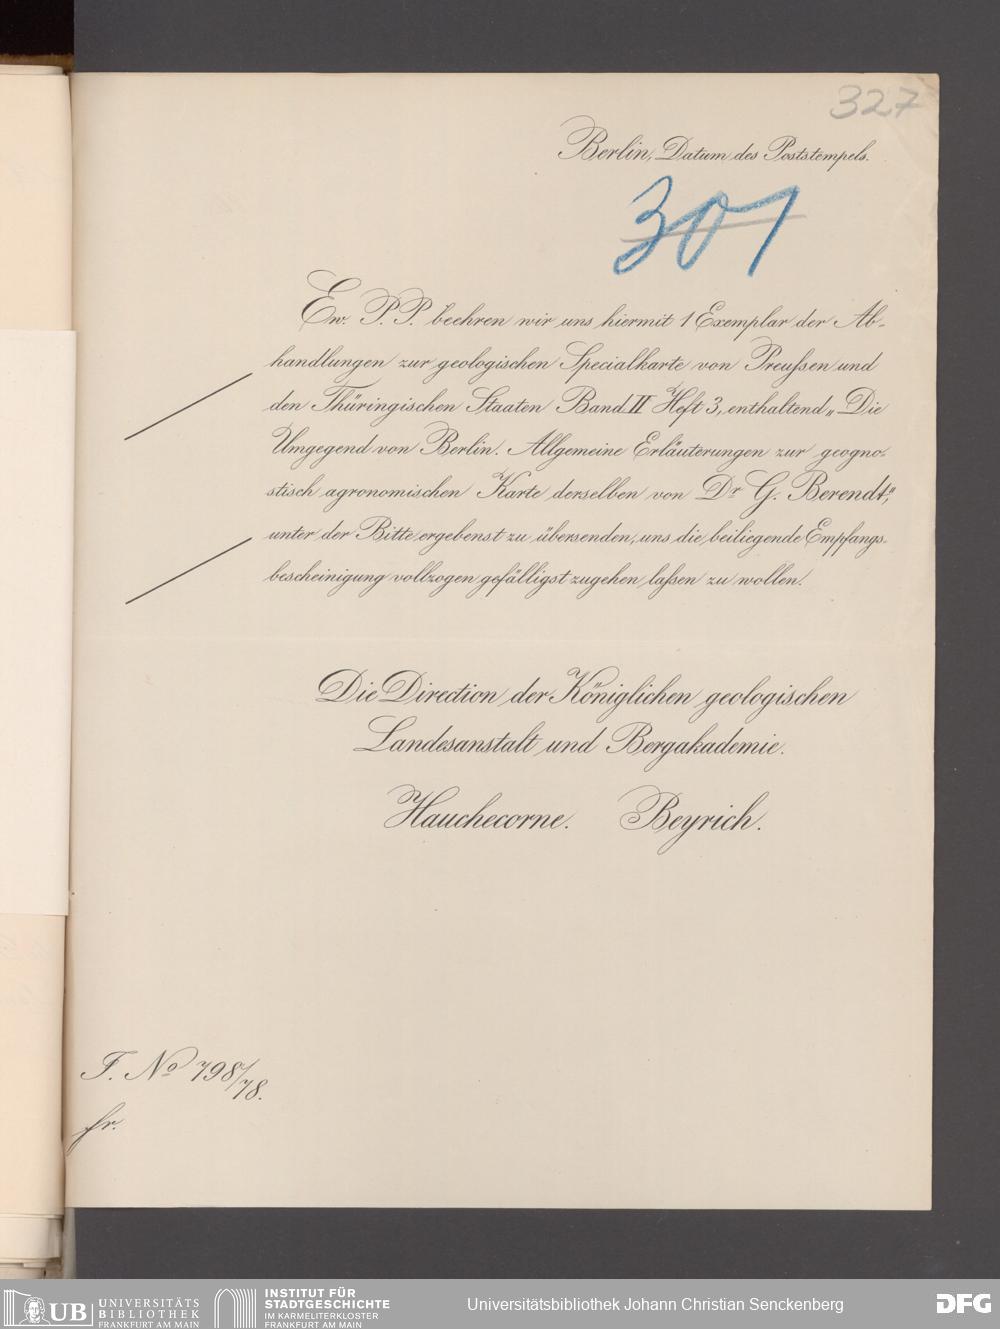 327
Berlin, Datum des Poststempels.
301
Ew. P. P. beehren wir uns hiermit 1 Exemplar der Ab-
handlungen zur geologischen Specialkarte von Preußen und
den Thüringischen Staaten Band II Heft 3, enthaltend „Die
Umgegend von Berlin. Allgemeine Erläuterungen zur geogno-
stisch agronomischen Karte derselben von Dr G. Berendt,“
unter der Bitte ergebenst zu übersenden, uns die beiliegende Empfangs-
bescheinigung vollzogen gefälligst zugehen laßen zu wollen.
Die Direction der Königlichen geologischen
Landesanstalt und Bergakademie.
Hauchecorne. Beyrich.
F. No 798/78.
fr.
UB UNIVERSITÄTS
BIBLIOTHEK
FRANKFURT AM MAIN
INSTITUT FÜR
STADTGESCHICHTE
IM KARMELITERKLOSTER
FRANKFURT AM MAIN
Universitätsbibliothek Johann Christian Senckenberg
DFG